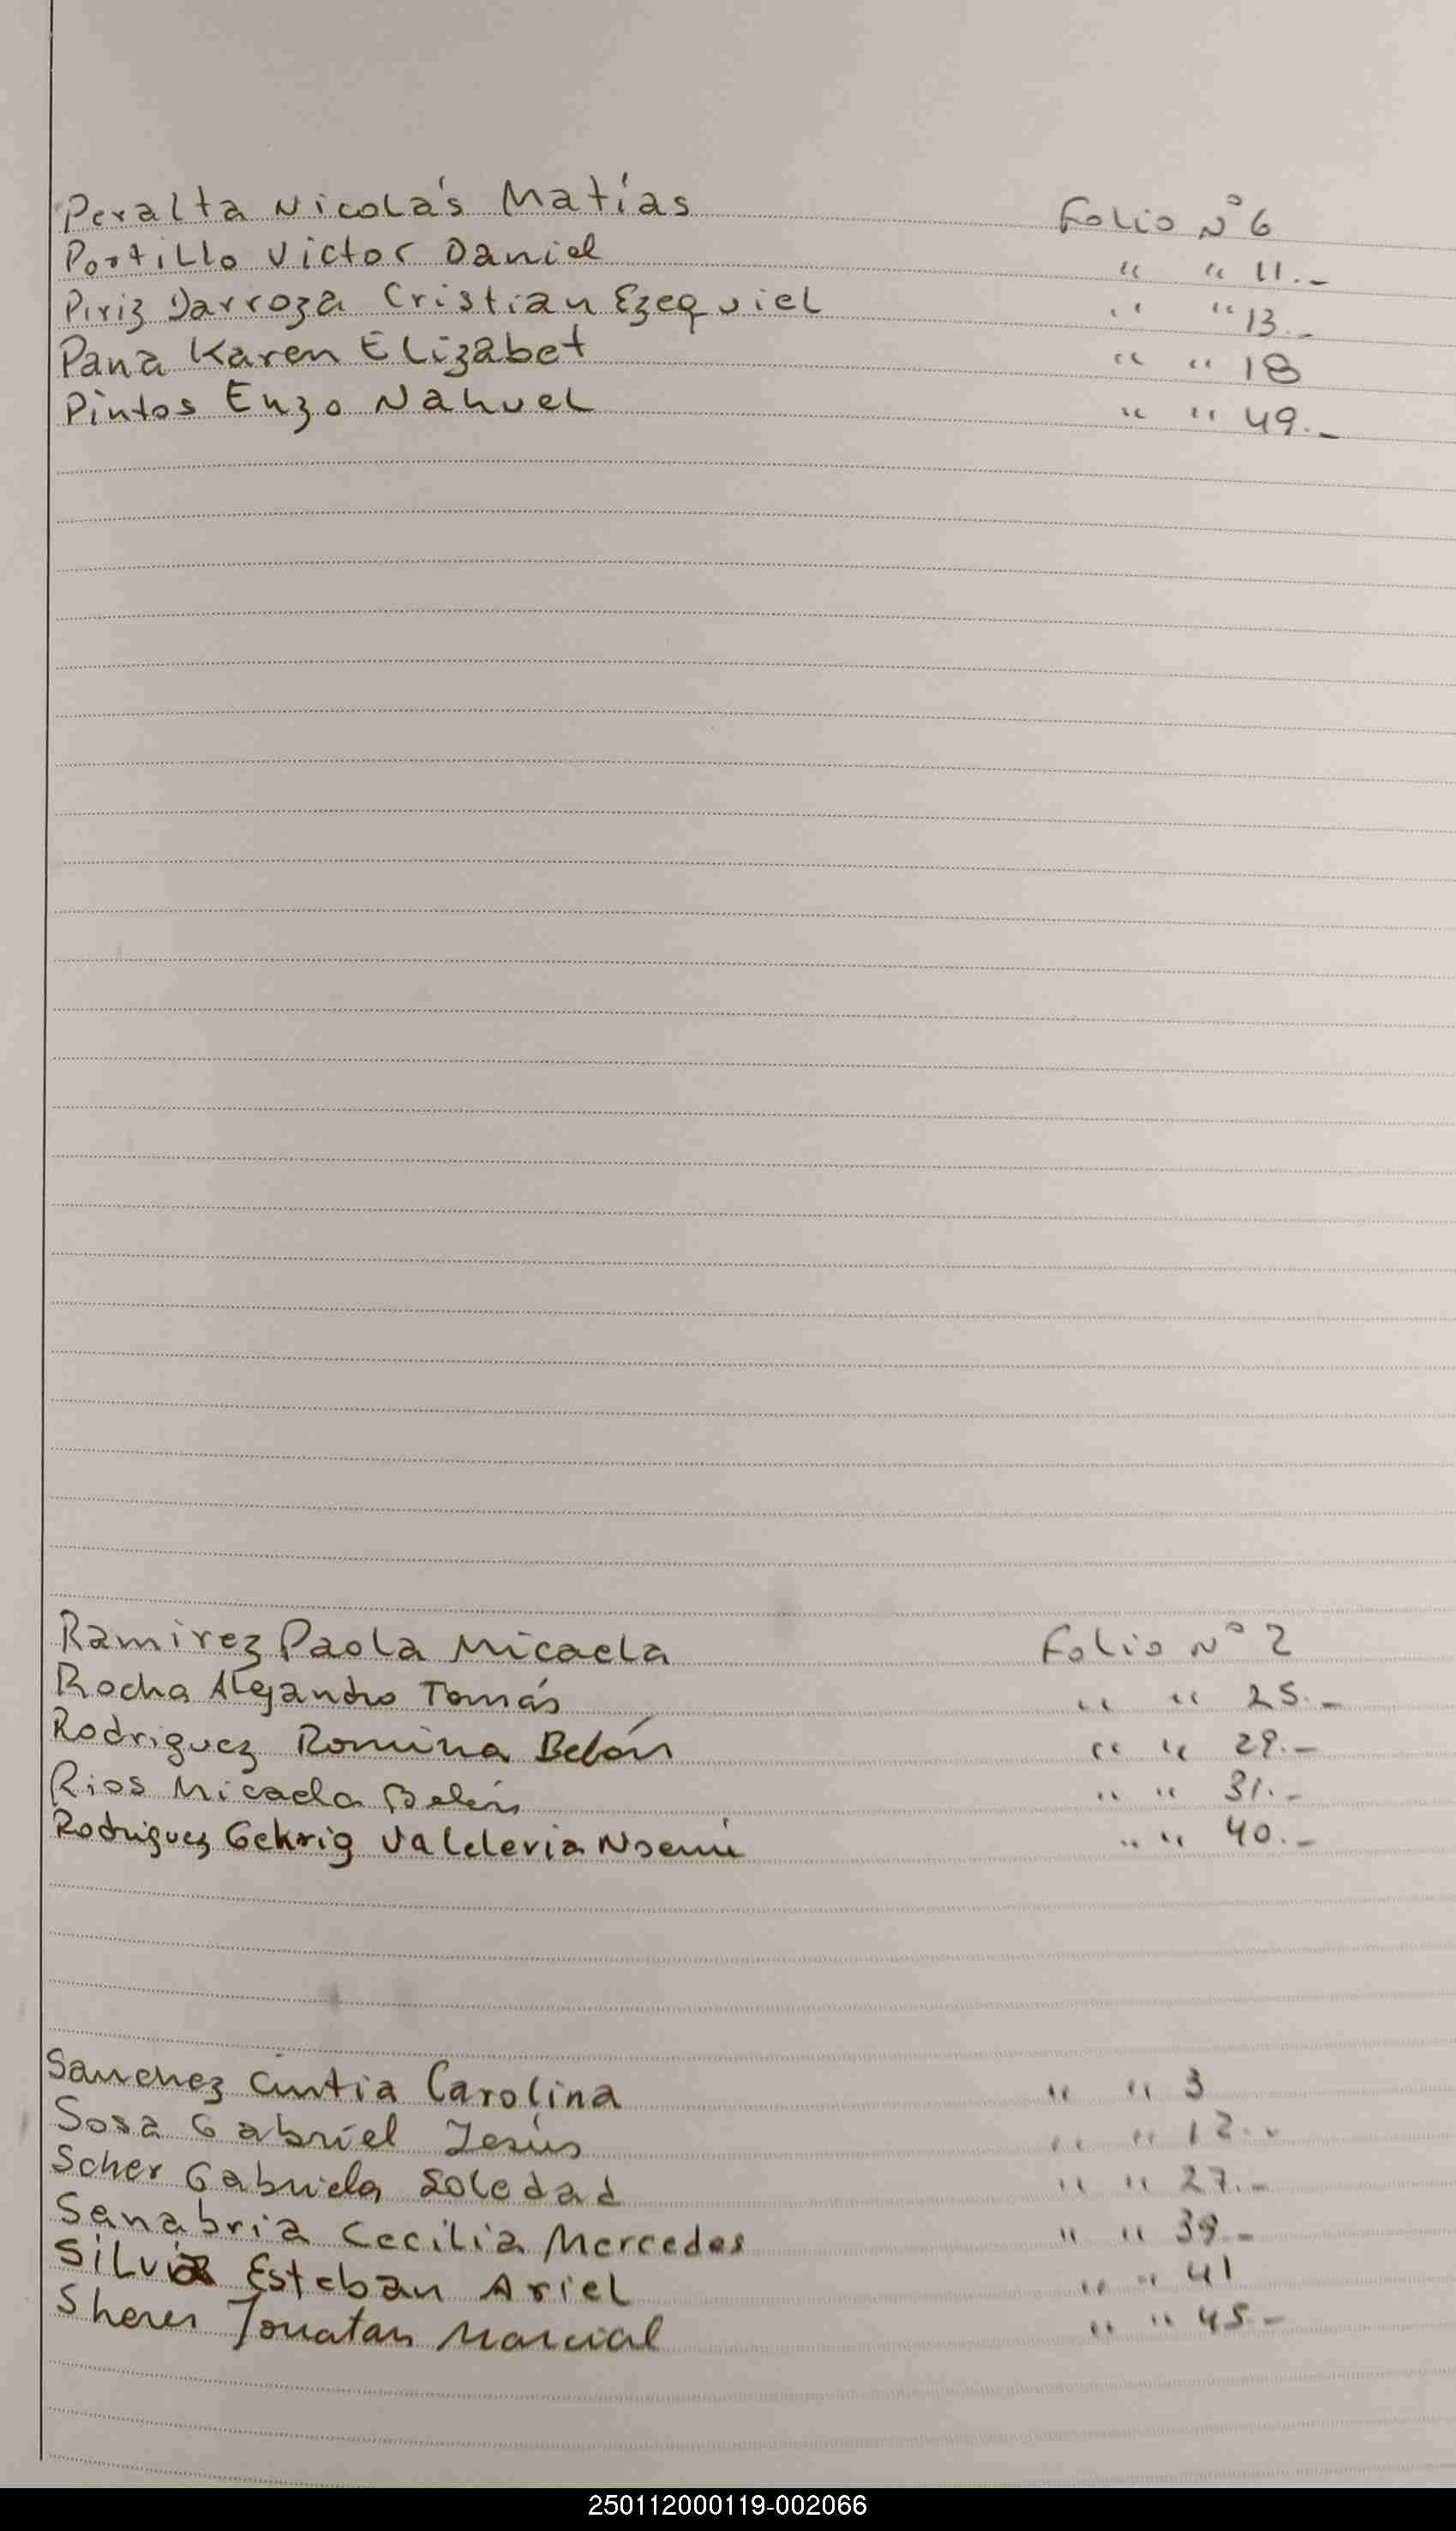 Peralta Nicolás Matías Folio N° 6
Portillo Victor Daniel " " 11.-
Piriz Darroza Cristian Ezequiel " " 13.-
Pana Karen Elizabet " " 18
Pintos Enzo Nahuel " " 49.-
Ramirez Paola Micaela Folio N° 2
Rocha Alejandro Tomás " " 25.-
Rodriguez Romina Belén " " 29.-
Rios Micaela Belén " " 31.-
Rodriguez Gehrig Valeleria Noemí " " 40.-
Sanchez Cintia Carolina " " 3
Sosa Gabriel Jesús " " 12.-
Scher Gabriela Soledad " " 27.-
Sanabria Cecilia Mercedes " " 39.-
Silvia Esteban Ariel " " 41
Sherer Jonatan Marcial " " 45-
250112000119-002066